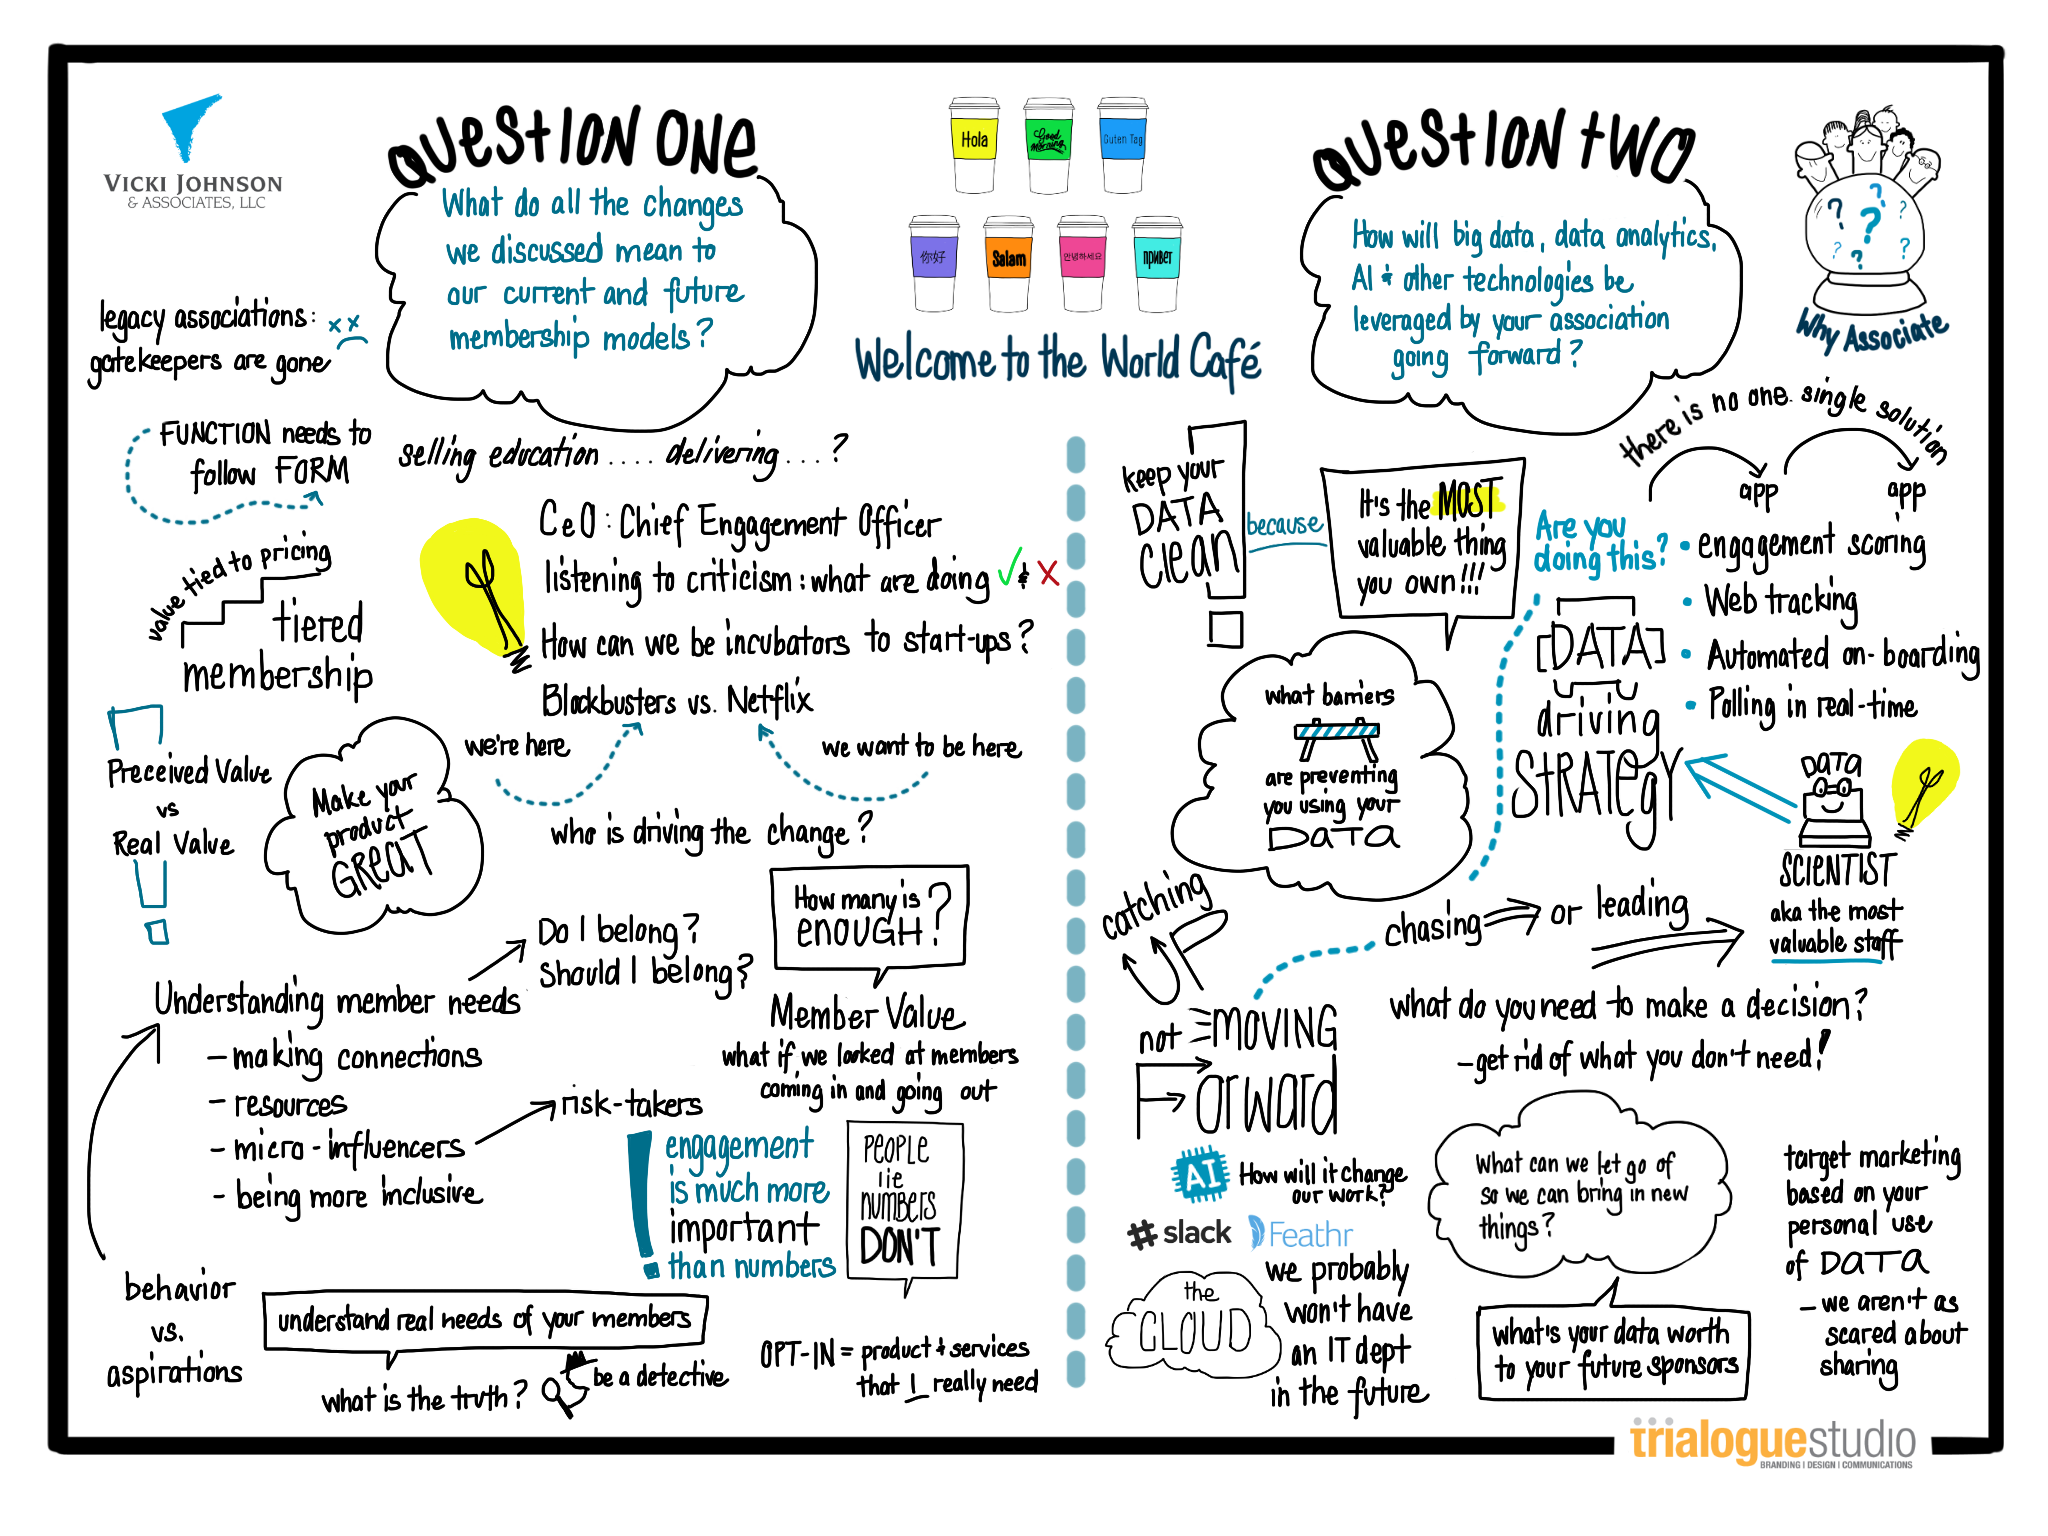 VICKI JOHNSON
& ASSOCIATES, LLC
QUESTION ONE
What do all the changes
we discussed mean to
our current and future
membership models?
legacy associations:
gatekeepers are gone
FUNCTION needs to
follow FORM
selling education .... delivering ... ?
value tied to pricing
tiered
membership
CeO: Chief Engagement Officer
listening to criticism: what are doing ✓ & X
How can we be incubators to start-ups?
Blockbusters vs. Netflix
we're here
we want to be here
who is driving the change?
Preceived Value
vs
Real Value
Make your
product
GREAT
How many is
ENOUGH?
Do I belong?
Should I belong?
Understanding member needs
- making connections
- resources
- micro-influencers
- being more inclusive
risk-takers
Member Value
what if we looked at members
coming in and going out
engagement
is much more
important
than numbers
PEOPLE
lie
NUMBERS
DON'T
behavior
vs.
aspirations
understand real needs of your members
what is the truth?
be a detective
OPT-IN = product & services
that I really need
Hola
Good
morning
Guten Tag
你好
Salam
안녕하세요
привет
Welcome to the World Café
QUESTION TWO
How will big data, data analytics,
AI & other technologies be
leveraged by your association
going forward?
? ? ? ? ? ?
Why Associate
there is no one single solution
app
app
keep your
DATA
clean
because
It's the MOST
valuable thing
you own!!!
Are you
doing this?
• engagement scoring
• Web tracking
• Automated on-boarding
• Polling in real-time
[DATA]
driving
STRATEGY
what barriers
are preventing
you using your
DATA
DATA
SCIENTIST
aka the most
valuable staff
catching
UP
not MOVING
Forward
chasing or leading
what do you need to make a decision?
- get rid of what you don't need!
AI
How will it change
our work?
slack
Feathr
the
CLOUD
we probably
won't have
an IT dept
in the future
What can we let go of
so we can bring in new
things?
what's your data worth
to your future sponsors
target marketing
based on your
personal use
of DATA
- we aren't as
scared about
sharing
trialoguestudio
BRANDING | DESIGN | COMMUNICATIONS